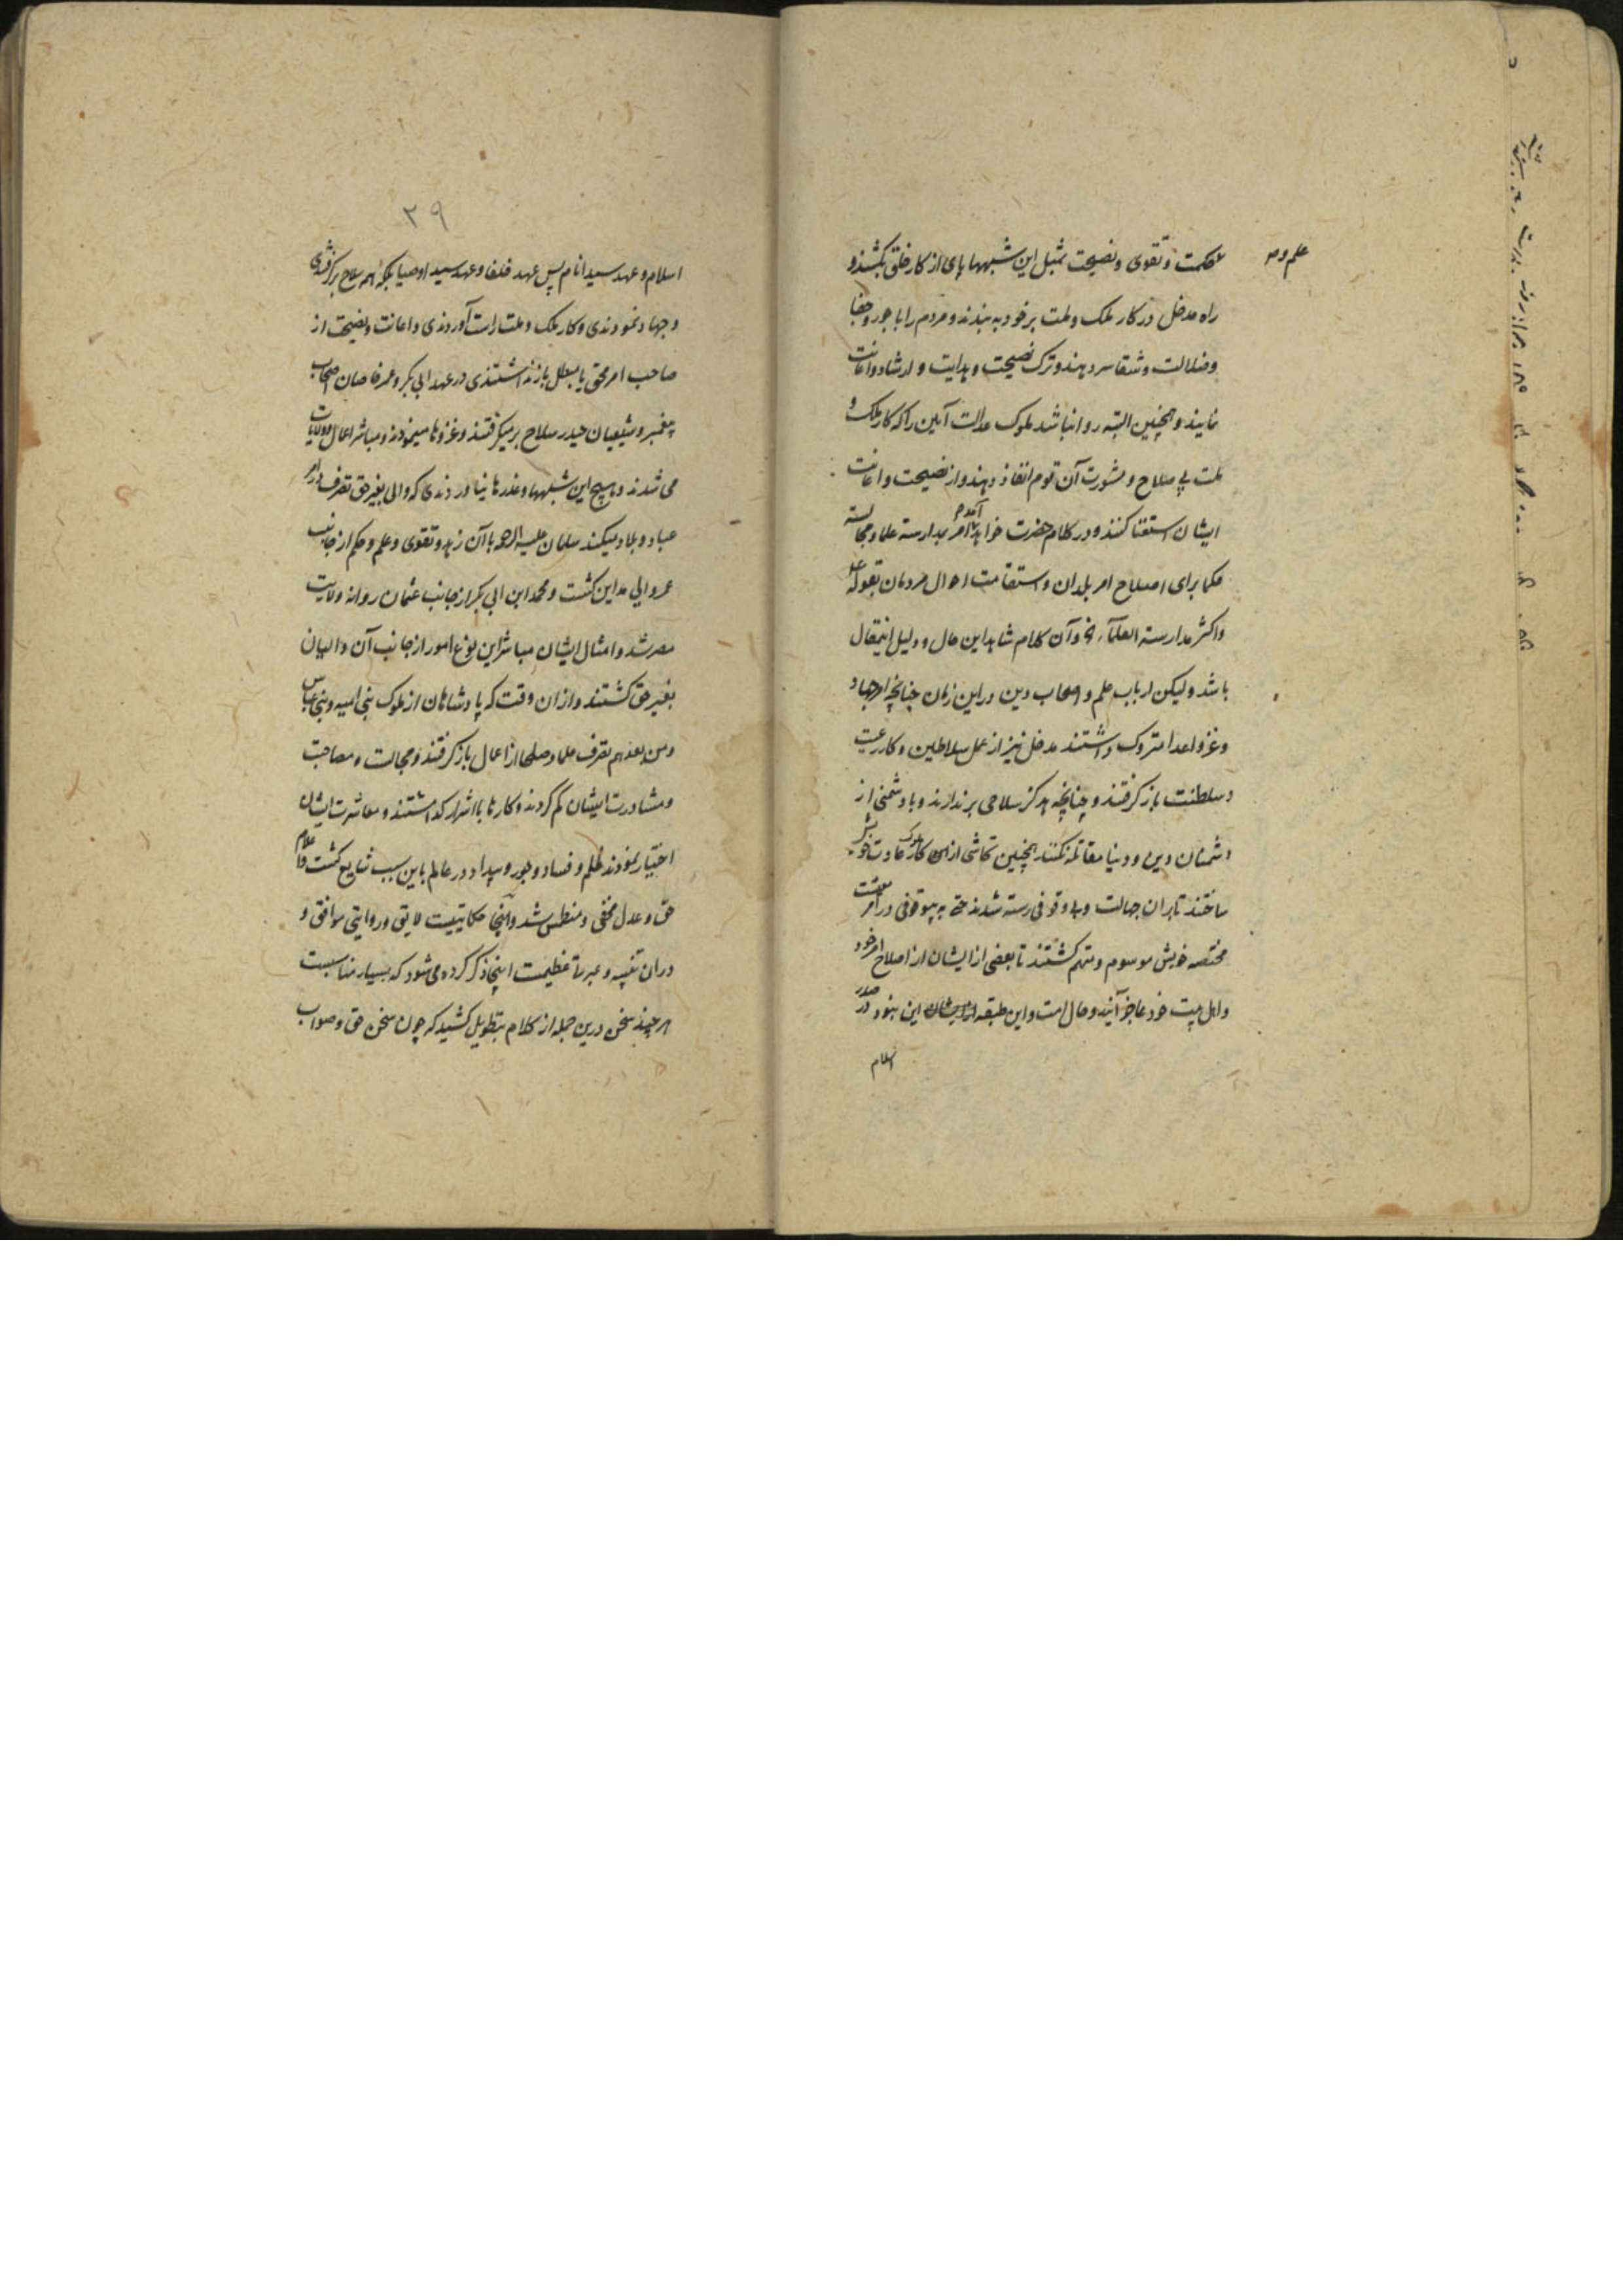 حکمت و تقوی و نصیحت بمثل این شبهها پای از کار خلق بکشند و
علم و
راه مدخل در کار ملک و ملت بر خود به بندند و مردم را با جور و جفا
و ضلالت و شقا سر دهند و ترک نصیحت و هدایت و ارشاد و اعانت
نمایند و همچنین البته روا نباشد ملوک عدالت آیین را که کار ملک و
ملت بی صلاح و مشورت آن قوم انفاذ دهند و از نصیحت و اعانت
ایشان استغنا کنند و در کلام حضرت امر بمدارسه علما و مجالسه
حکما برای اصلاح امر بلدان و استقامت احوال مردمان بقوله
و اکثر مدارسة العلمآء و آن کلام شاهد این حال و دلیل اینمقال
باشد و لیکن ارباب علم و اصحاب دین در این زمان چنانچه امر جهاد
و غزو اعدا متروک داشتند مدخل نیز از عمل سلاطین و کار رعیت
و سلطنت باز گرفتند و چنانچه هرگز سلاحی برندارند و با دشمنی از
دشمنان دین و دنیا مقاتله نکنند همچنین تحاشی از کار ملوک عادت خود
ساختند تا بران جهالت و بی وقوفی رسته شدند حتی به بیوقوفی در امر معیشت
مختصه خویش موسوم و متهم گشتند تا بعضی از ایشان از اصلاح امر خود
و اهل بیت خود عاجز آیند و حال امت و این طبقه این نبود در صدر
اسلام
۳۹
اسلام و عهد سید انام پس عهد خلفا و عهد سید اوصیا بلکه همه سلاح برگرفتندی
و جهاد نمودندی و کار ملک و ملت راست آوردندی و اعانت و نصیحت از
صاحب امر محق یا مبطل باز نداشتندی در عهد ابی بکر و عمر خاصان اصحاب
پیغمبر و شیعیان حیدر سلاح بر میگرفتند و غزوها مینمودند و مباشر اعمال و ولایات
می شدند و هیچ این شبهها و عذرها نیاوردندی که والی بغیر حق تصرف در امر
عباد و بلاد میکند سلمان علیه الرحمه با آن زهد و تقوی و علم و حکم از جانب
عمر والی مداین گشت و محمد ابن ابی بکر از جانب عثمان روانه ولایت
مصر شد و امثال ایشان مباشر این نوع امور از جانب آن والیان
بغیر حق گشتند و ازان وقت که پادشاهان از ملوک بنی امیه و بنی عباس
و من بعدهم تصرف علما و صلحا از اعمال باز گرفتند و مجالست و مصاحبت
و مشاورت ایشان کم کردند و کارها با اشرار گذاشتند و معاشرت ایشان
اختیار نمودند ظلم و فساد و جور و بیداد در عالم باین سبب شایع گشت و اعلام
حق و عدل مخفی و منطمس شد و اینجا حکایتیست لایق و روایتی موافق و
دران تنبیه و عبرتا عظیمت اینجا ذکر کرده می شود که بسیار مناسبست
هر چند سخن درین جمله از کلام بتطویل کشید که چون سخن حق و صواب